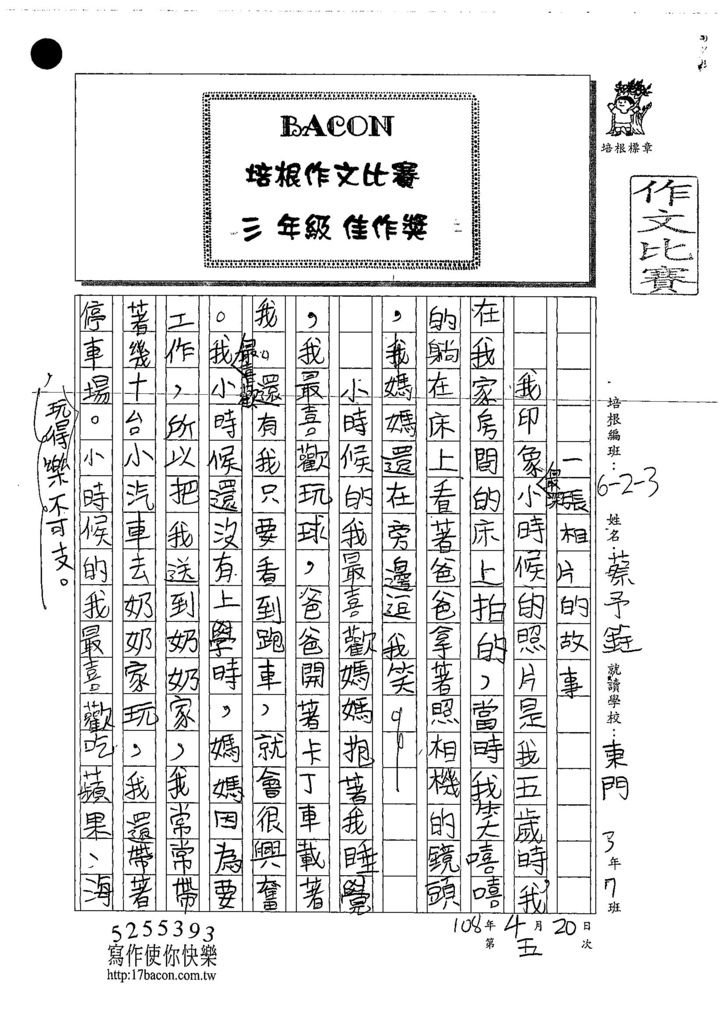 BACON
培根作文比賽
三年級 佳作獎
培根標章
作文比賽
培根編班：6-2-3 姓名：蔡予 就讀學校：東門 3年7班
108年4月20日
第五次
一張相片的故事
我印象最深小時候的照片是我五歲時，我
在我家房間的床上拍的，當時我笑嘻嘻
的躺在床上看著爸爸拿著照相機的鏡頭
，我媽媽還在旁邊逗我笑。
小時候的我最喜歡媽媽抱著我睡覺
，我最喜歡玩球，爸爸開著卡丁車載著
我。還有我只要看到跑車，就會很興奮
。我最喜歡小時候還沒有上學時，媽媽因為要
工作，所以把我送到奶奶家，我常常帶
著幾十台小汽車去奶奶家玩，我還帶著
停車場。小時候的我最喜歡吃蘋果、海
，玩得樂不可支。
5255393
寫作使你快樂
http:17bacon.com.tw